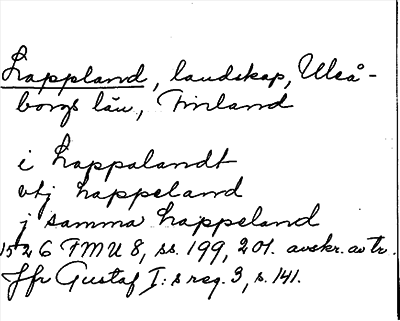 Lappland, landskap, Uleå-
borgs län, Finland
i Lappalandt
vtj Lappeland
j samma Lappeland
1526 FMU 8, ss. 199, 201. avskr. av tr.
Jfr Gustaf I:s reg. 3, s. 141.